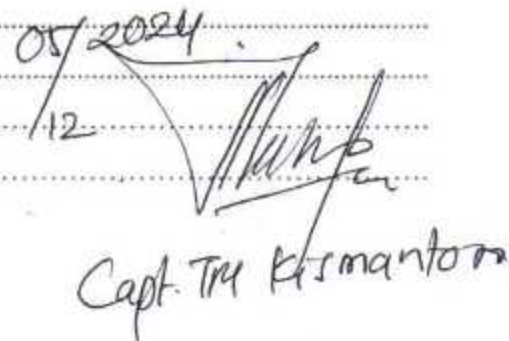 05/12 2024
Capt. Tri Kismantoro